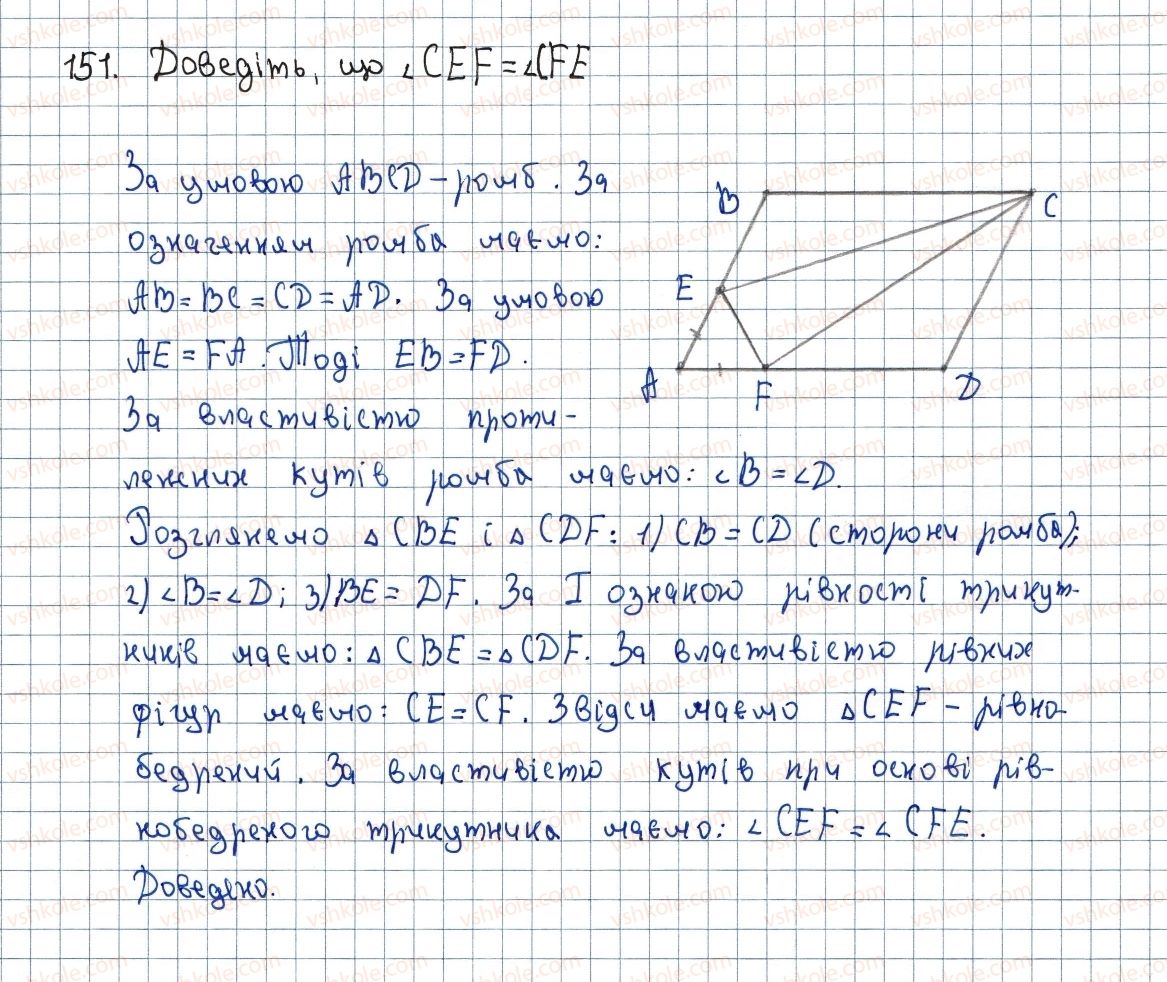 151. Доведіть, що ∠CEF = ∠CFE
За умовою ABCD – ромб. За
означенням ромба маємо:
AB = BC = CD = AD. За умовою
AE = FA. Тоді EB = FD.
За властивістю проти-
лежних кутів ромба маємо: ∠B = ∠D.
Розглянемо △CBE і △CDF: 1) CB = CD (сторони ромба);
2) ∠B = ∠D; 3) BE = DF. За I ознакою рівності трикут-
ників маємо: △CBE = △CDF. За властивістю рівних
фігур маємо: CE = CF. Звідси маємо △CEF – рівно-
бедрений. За властивістю кутів при основі рів-
нобедреного трикутника маємо: ∠CEF = ∠CFE.
Доведено.
B
C
E
A
F
D
vshkole.com